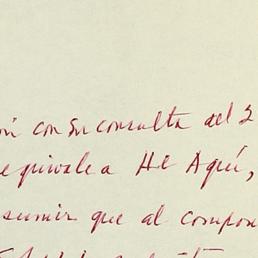 ón con su consulta del 2
equivale a He Aquí,
sumir que al compon